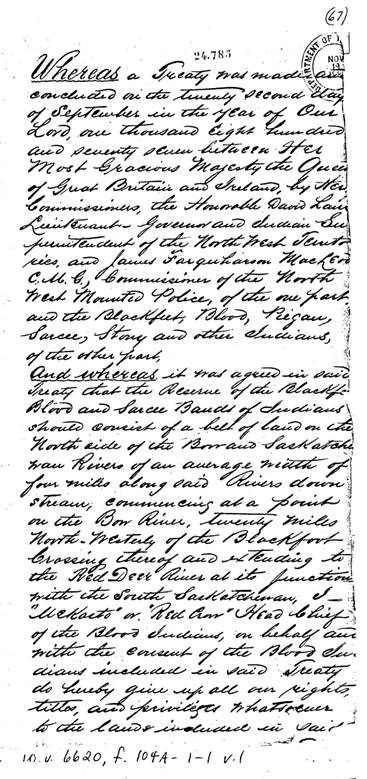 (67)
24.785
DEPARTMENT OF
NOV
Whereas a Treaty was made an
concluded on the twenty second day
of September in the year of Our
Lord, one thousand eight hundred
and seventy seven between Her
Most Gracious Majesty the Queen
of Great Britain and Ireland, by Her
Commissioners, the Honorable David Laird
Lieutenant-Governor and Indian Su
perintendent of the North West Territo
ries, and James Farquharson MacLeod
C.M.G., Commissioner of the North
West Mounted Police, of the one part,
and the Blackfeet, Blood, Piegan,
Sarcee, Stony and other Indians,
of the other part,
And whereas it was agreed in said
Treaty that the Reserve of the Blackf-
Blood and Sarcee Bands of Indians
should consist of a belt of land on the
North side of the Bow and Saskatche
wan Rivers of an average width of
four miles along said Rivers down
stream, commencing at a point
on the Bow River, twenty miles
North-Westerly of the Blackfoot
Crossing thereof and extending to
the Red Deer River at its junction
with the South Saskatchewan, I—
"Mckasto" or "Red Crow" Head Chief
of the Blood Indians, on behalf and
with the consent of the Blood In-
dians included in said Treaty
do hereby give up all our rights,
titles, and privileges whatsoever
to the lands included in said
6620, f. 104A-1-1 v.1